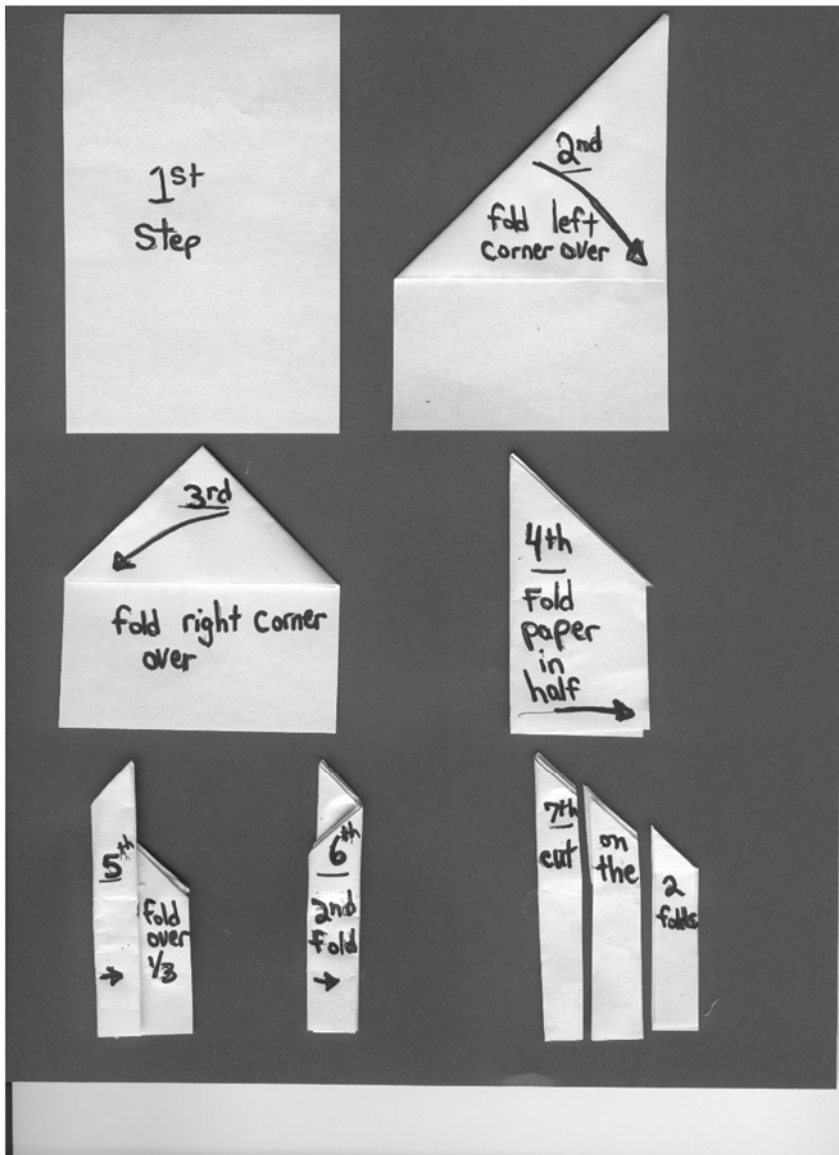 1st
Step
2nd
fold left
corner over
3rd
fold right corner
over
4th
Fold
paper
in
half
5th
fold
over
1/3
6th
2nd
fold
7th
cut
on
the
2
folds